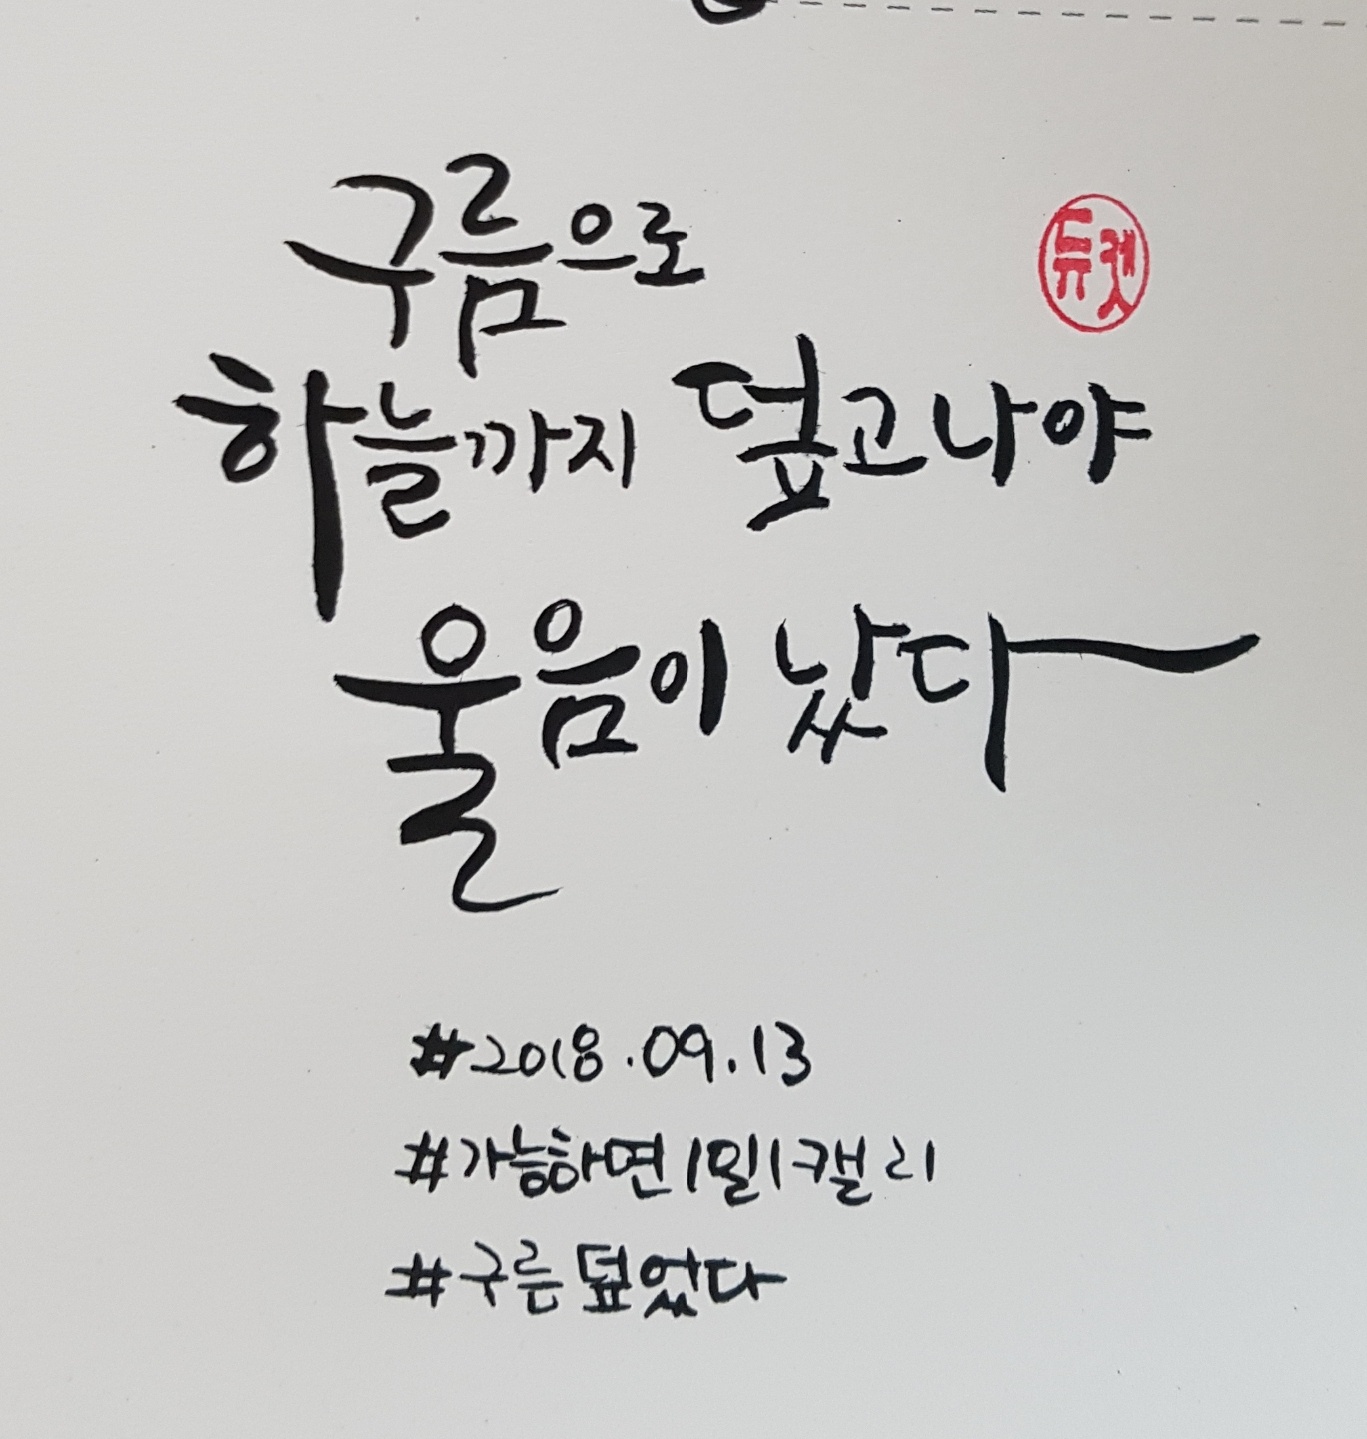 구름으로
듀켓
하늘까지 덮고나야
울음이 났다
#2018.09.13
#가능하면1일1캘리
#구름덮었다